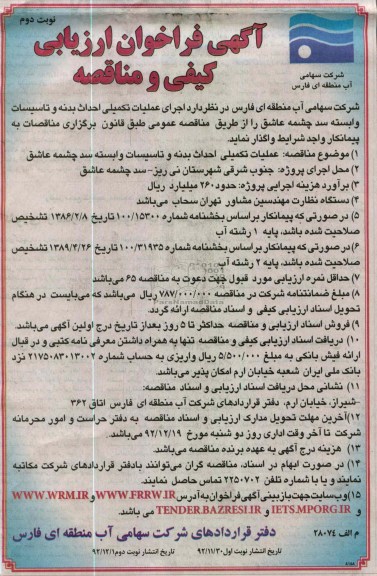 نوبت دوم
آگهی فراخوان ارزیابی
کیفی و مناقصه
شرکت سهامی
آب منطقه ای فارس
شرکت سهامی آب منطقه ای فارس در نظر دارد اجرای عملیات تکمیلی احداث بدنه و تاسیسات
وابسته سد چشمه عاشق را از طریق مناقصه عمومی طبق قانون برگزاری مناقصات به
پیمانکار واجد شرایط واگذار نماید.
۱) موضوع مناقصه: عملیات تکمیلی احداث بدنه و تاسیسات وابسته سد چشمه عاشق
۲) محل اجرای پروژه: جنوب شرقی شهرستان نی ریز-سد چشمه عاشق
۳) برآورد هزینه اجرایی پروژه: حدود ۲۶۰ میلیارد ریال
۴) دستگاه نظارت مهندسین مشاور تهران سحاب می‌باشد
۵) در صورتی که پیمانکار براساس بخشنامه شماره ۱۰۰/۱۵۳۰۰ تاریخ ۱۳۸۶/۲/۸ تشخیص
صلاحیت شده باشد، پایه ۱ رشته آب
۶) در صورتی که پیمانکار براساس بخشنامه شماره ۱۰۰/۳۱۹۳۵ تاریخ ۱۳۸۹/۴/۲۶ تشخیص
صلاحیت شده باشد، پایه ۲ رشته آب
۷) حداقل نمره ارزیابی مورد قبول جهت دعوت به مناقصه ۶۵ می‌باشد
۸) مبلغ ضمانتنامه شرکت در مناقصه ۷۸۷/۰۰۰/۰۰۰ ریال می‌باشد که می‌بایست در هنگام
تحویل اسناد ارزیابی کیفی و اسناد مناقصه ارائه گردد.
۹) فروش اسناد ارزیابی و مناقصه حداکثر تا ۵ روز بعداز تاریخ درج اولین آگهی می‌باشد.
۱۰) دریافت اسناد ارزیابی کیفی و مناقصه تنها به همراه داشتن معرفی نامه کتبی و در قبال
ارائه فیش بانکی به مبلغ ۵/۵۰۰/۰۰۰ ریال واریزی به حساب شماره ۲۱۷۵۰۸۳۰۱۳۰۰۲ نزد
بانک ملی ایران شعبه خیابان ارم امکان پذیر می‌باشد.
۱۱) نشانی محل دریافت اسناد ارزیابی و اسناد مناقصه:
-شیراز، خیابان ارم، دفتر قراردادهای شرکت آب منطقه ای فارس اتاق ۳۶۲
۱۲) آخرین مهلت تحویل مدارک ارزیابی و اسناد مناقصه به دفتر حراست و امور محرمانه
شرکت تا آخر وقت اداری روز دو شنبه مورخ ۹۲/۱۲/۱۹ می باشد.
۱۳) هزینه درج آگهی به عهده برنده مناقصه می‌باشد.
۱۴) در صورت ابهام در اسناد، مناقصه گران می‌توانند بادفتر قراردادهای شرکت مکاتبه
نمایند و یا با شماره تلفن ۲۲۵۰۷۰۲ تماس حاصل نمایند.
۱۵) وب‌سایت جهت بازبینی آگهی فراخوان به آدرس WWW.FRRW.IR و WWW.WRM.IR
و IETS.MPORG.IR و TENDER.BAZRESI.IR می باشد.
دفتر قراردادهای شرکت سهامی آب منطقه ای فارس
م الف ۲۸۰۷۴
تاریخ انتشار نوبت اول ۹۲/۱۱/۳۰
تاریخ انتشار نوبت دوم ۹۲/۱۲/۱